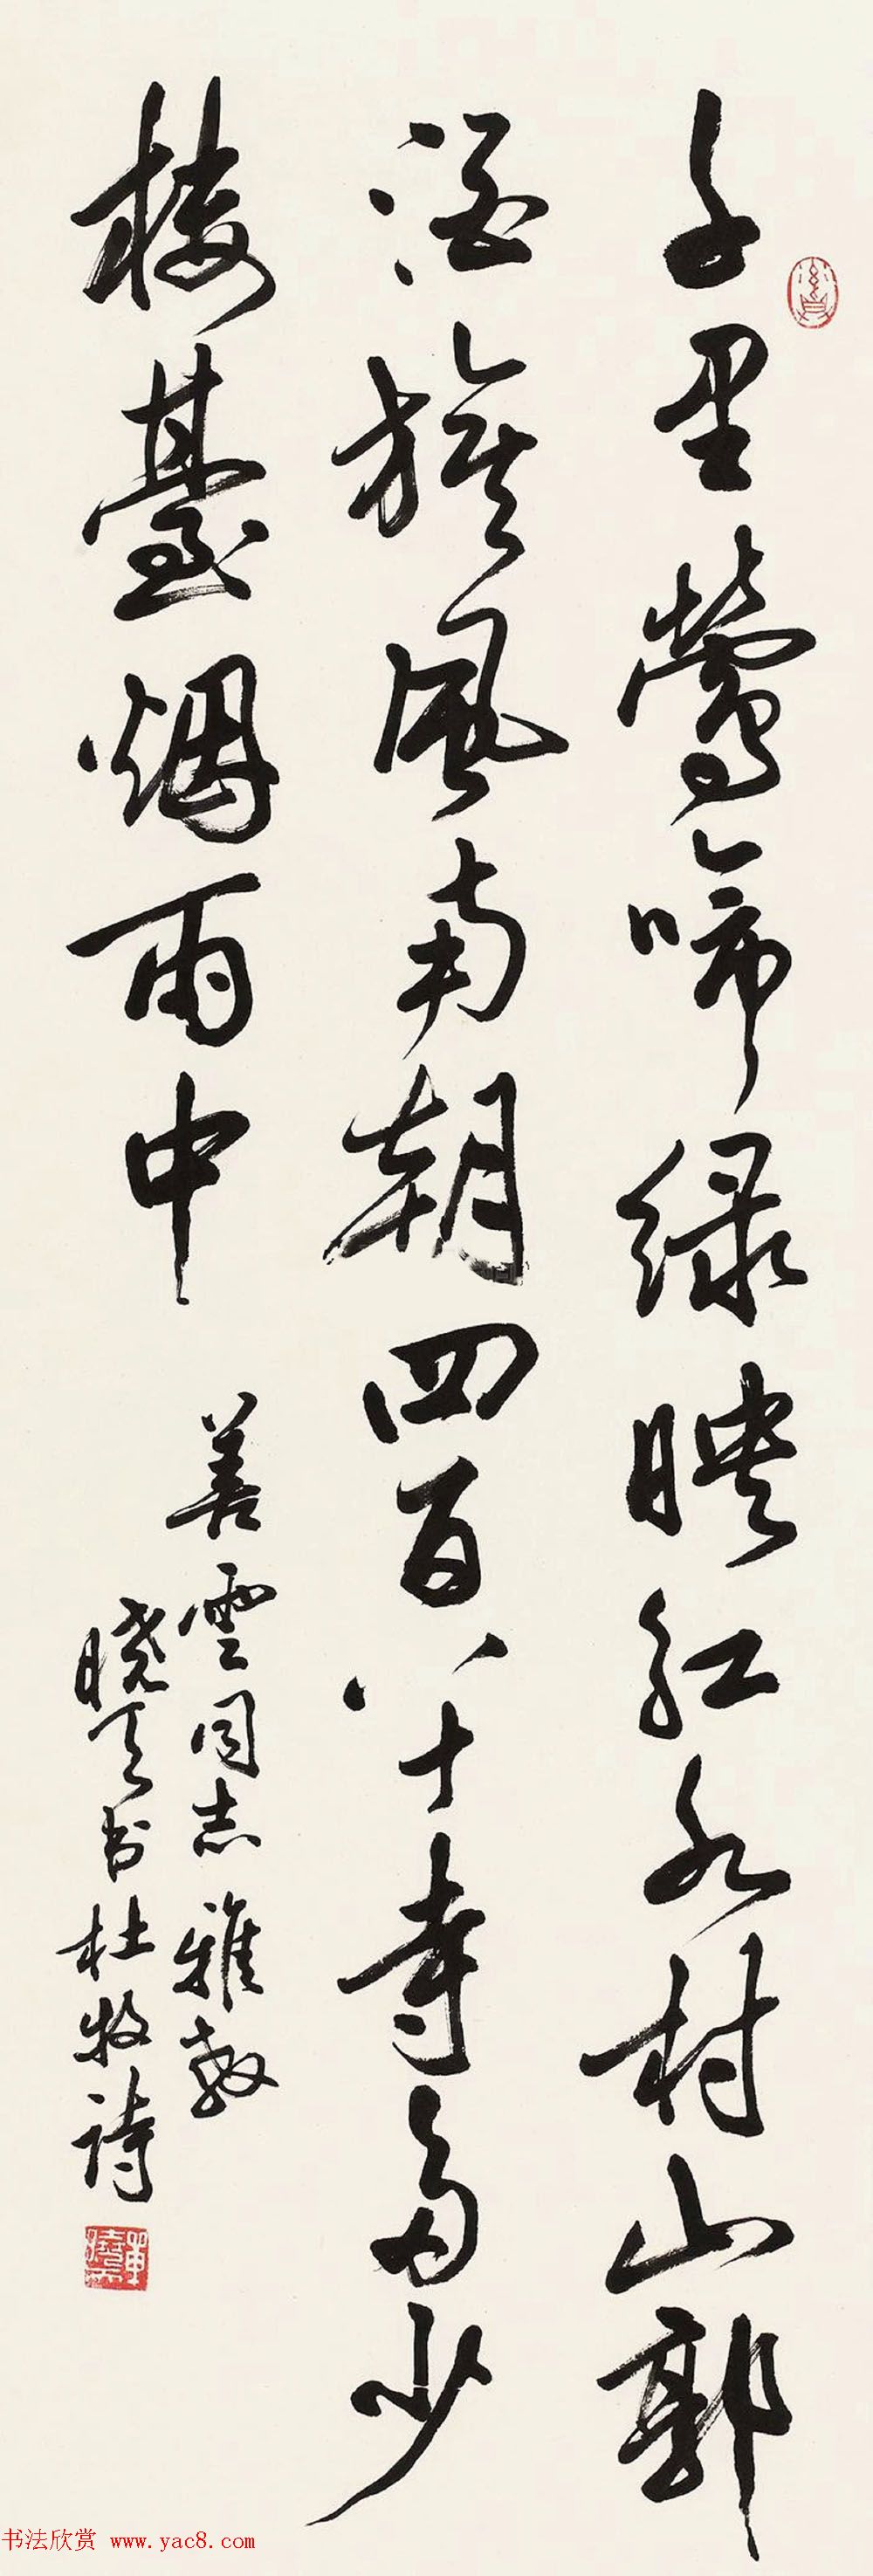 千里莺啼绿映红水村山郭
酒旗風南朝四百八十寺多少
楼臺烟雨中
善雲同志雅教
晓天书杜牧詩
书法欣赏 www.yac8.com